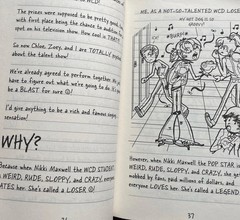 The prizes were supposed to be pretty good,
with first place being the chance to audition
spot on his television show. How cool is THAT?!
So now Chloe, Zoey, and I are TOTALLY
about the talent show!
We've already agreed to perform together. We ju
have to figure out what we're going to do. It's
be a BLAST for sure ☺!
I'd give anything to be a rich and famous
sensation!
WHY?
Because when Nikki Maxwell the WCD STUDENT
WEIRD, RUDE, SLOPPY, and CRAZY, everyone
HATES her. She's called a LOSER ☹!
ME, AS A NOT-SO-TALENTED WCD LOSE
*BURP!!*
However, when Nikki Maxwell the POP STAR is
WEIRD, RUDE, SLOPPY, and CRAZY, she get
mobbed by fans, paid millions of dollars, and
everyone LOVES her. She's called a LEGEND
37